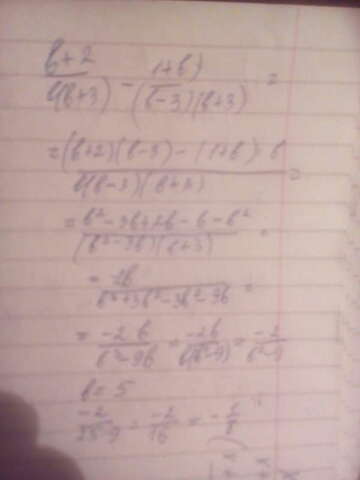 (b+2)/(b(b+3)) - (1+b)/((b-3)(b+3)) =
= ((b+2)(b-3) - (1+b) b)/(b(b-3)(b+3)) =
= (b²-3b+2b-b-b²)/((b²-3b)(b+3)) =
= 2b/(b³+3b²-3b²-9b) =
= (-2b)/(b³-9b) = (-2b)/(b(b²-9)) = (-2)/(b²-9)
b = 5
(-2)/(25-9) = (-2)/16 = -1/8